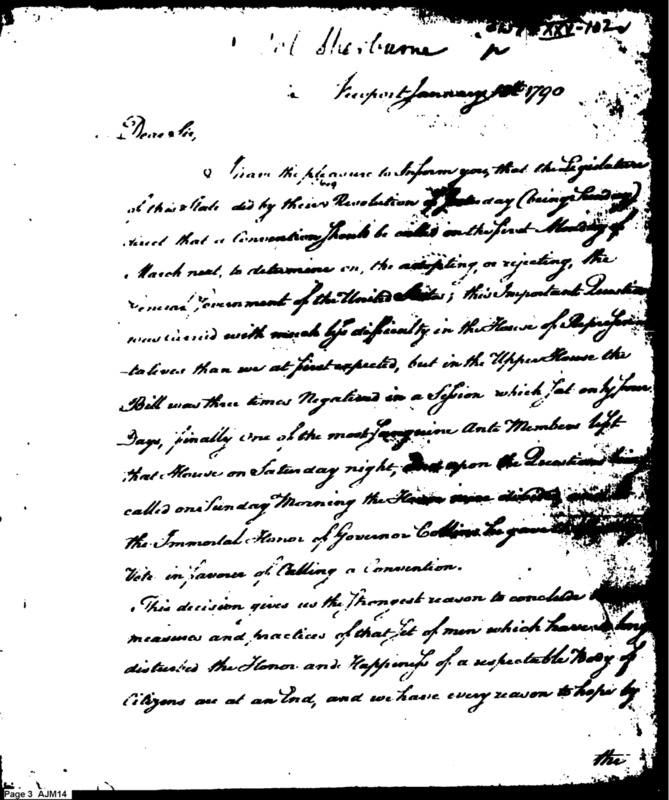 XXV-102
Col Sherburne
Newport January 18th 1790
Dear Sir,
I have the pleasure to Inform you, that the Legislature
of this State did by their Resolution of yesterday (being Sunday)
direct that a Convention should be called on the first Monday of
March next, to determine on, the adopting, or rejecting, the
General Government of the United States; this Important Question
was carried with much less difficulty in the House of Represen
-tatives than we at first expected, but in the Upper House the
Bill was three times Negatived in a Session which sat only four
Days, finally one of the most sanguine Ante Members left
that House on Saturday night, and upon the Question being
called on Sunday Morning the House were divided and to
the Immortal Honor of Governor Collins he gave
Vote in favour of Calling a Convention.
This decision gives us the strongest reason to conclude
measures and practices of that set of men which have so long
disturbed the Honor and Happiness of a respectable Body of
Citizens are at an End, and we have every reason to hope by
the
Page 3 AJM14